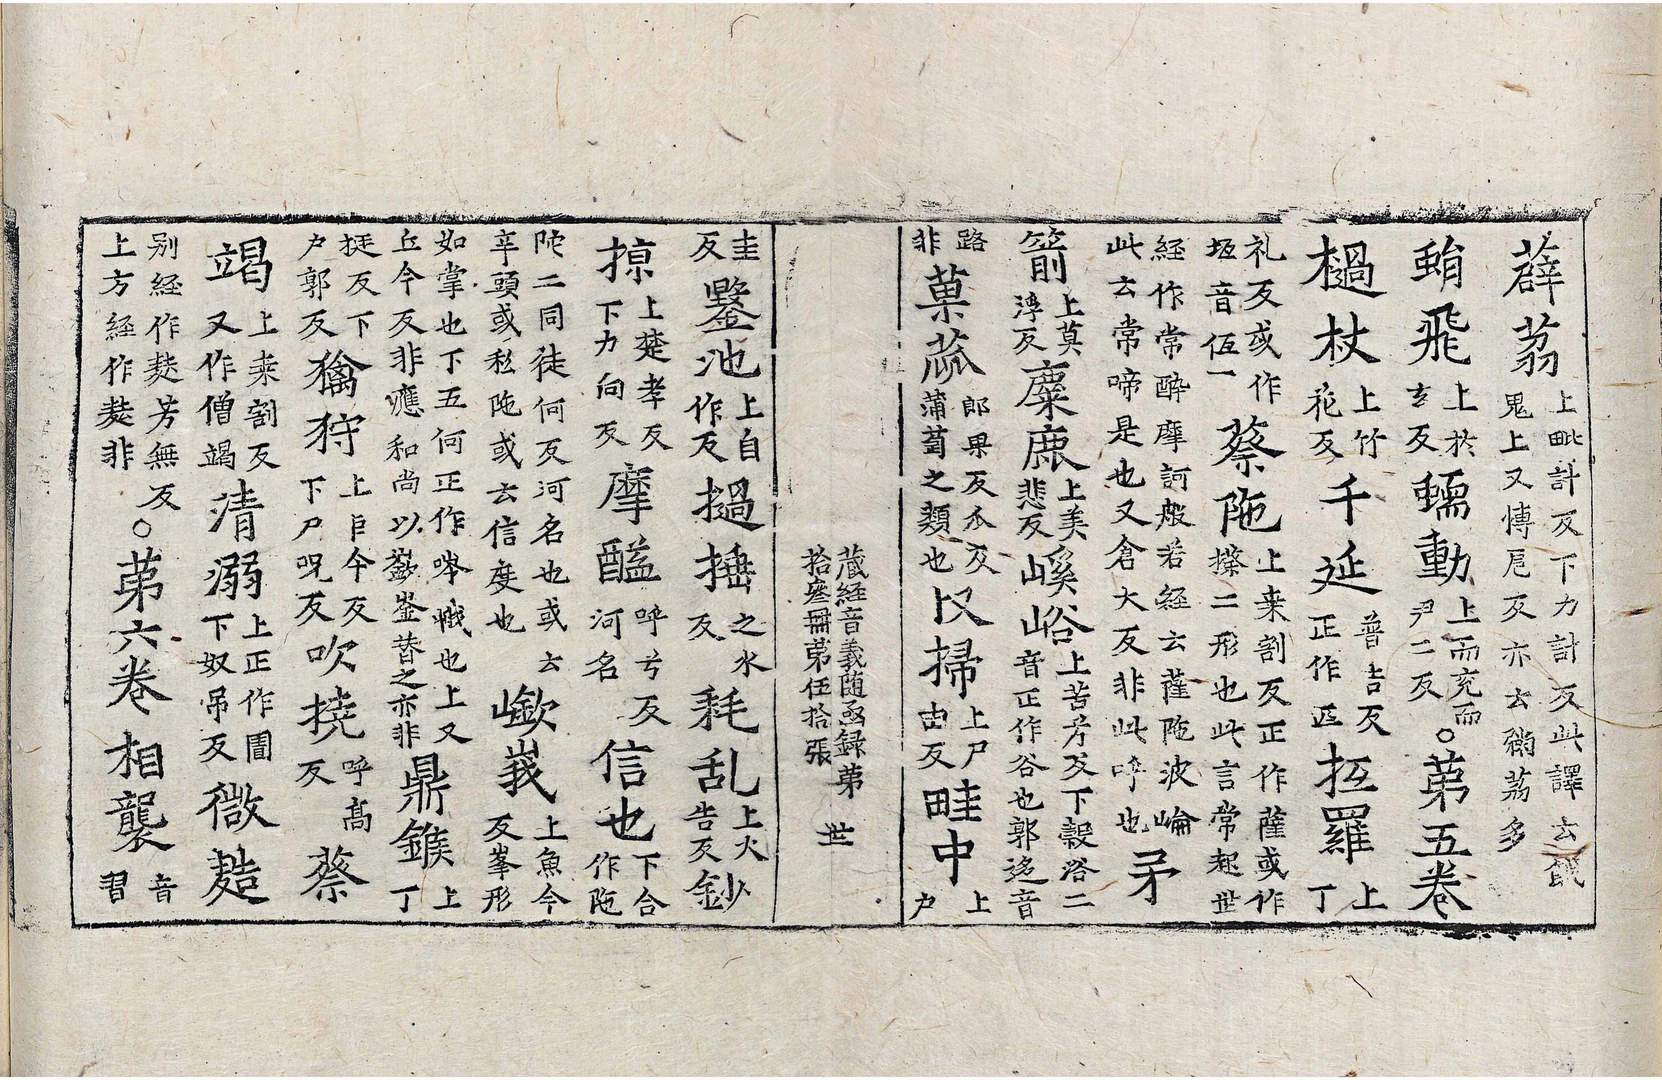 薜荔上毗計反下力計反此譯云餓鬼上又愽厄反亦云𮐃荔多
蜎飛上於玄反蠕動上而兗而尹二反〇第五卷
檛杖上竹花反千延普吉反正作匹拞羅上丁
礼反或作坘音伍一蔡陁上桒割反正作薩或作摖二形也此言常起世
経作常醉摩訶般若経云薩陁波崘此云常啼是也又倉大反非此呼也矛
箭上莫浮反麋鹿上美悲反嵠峪上苦兮反下穀浴二音正作谷也郭迻音
路非菓蓏郎果反瓜反蒲萄之類也㕛掃上尸由反畦中上户
圭反鑿池上自作反撾捶之水反耗乱上火告反鈔
掠上楚孝反下力向反摩醯呼兮反河名信也下合作陁
陀二同徒何反河名也或云辛頭或私陁或云信度也嶔峩上魚今反峯形
如掌也下五何正作㟁峨也上又丘今反非應和尚以嶔崟替之亦非鼎鑊上丁
挺反下户郭反擒狩上巨今反下尸呪反吹撓呼高反蔡
竭上桒割反又作僧竭清溺上正作圊下奴吊反微麨
别経作麩芳無反上方経作麩非〇第六卷相襲音習
藏経音義随函録第拾叁冊第伍拾張 世